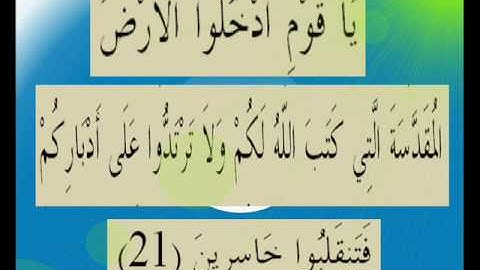 يَا قَوْمِ ادْخُلُوا الْأَرْضَ
الْمُقَدَّسَةَ الَّتِي كَتَبَ اللَّهُ لَكُمْ وَلَا تَرْتَدُّوا عَلَى أَدْبَارِكُمْ
فَتَنقَلِبُوا خَاسِرِينَ (21)